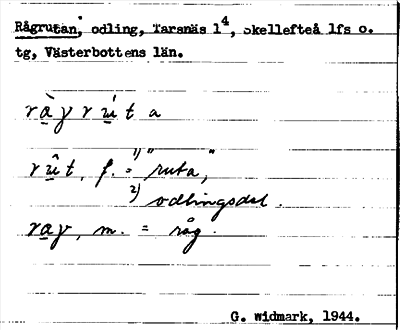 Rågrutan, odling, Tarsnäs 1⁴, Skellefteå lfs o.
tg, Västerbottens län.
ràγrút a
rût, f. = 1) "ruta",
2) odlingsdel.
raγ, m. = råg.
G. Widmark, 1944.